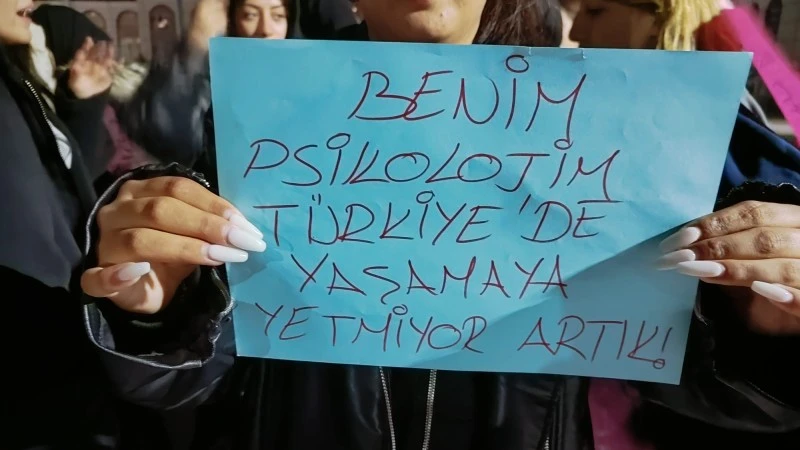 BENİM
PSİKOLOJİM
TÜRKİYE'DE
YAŞAMAYA
YETMİYOR ARTIK!